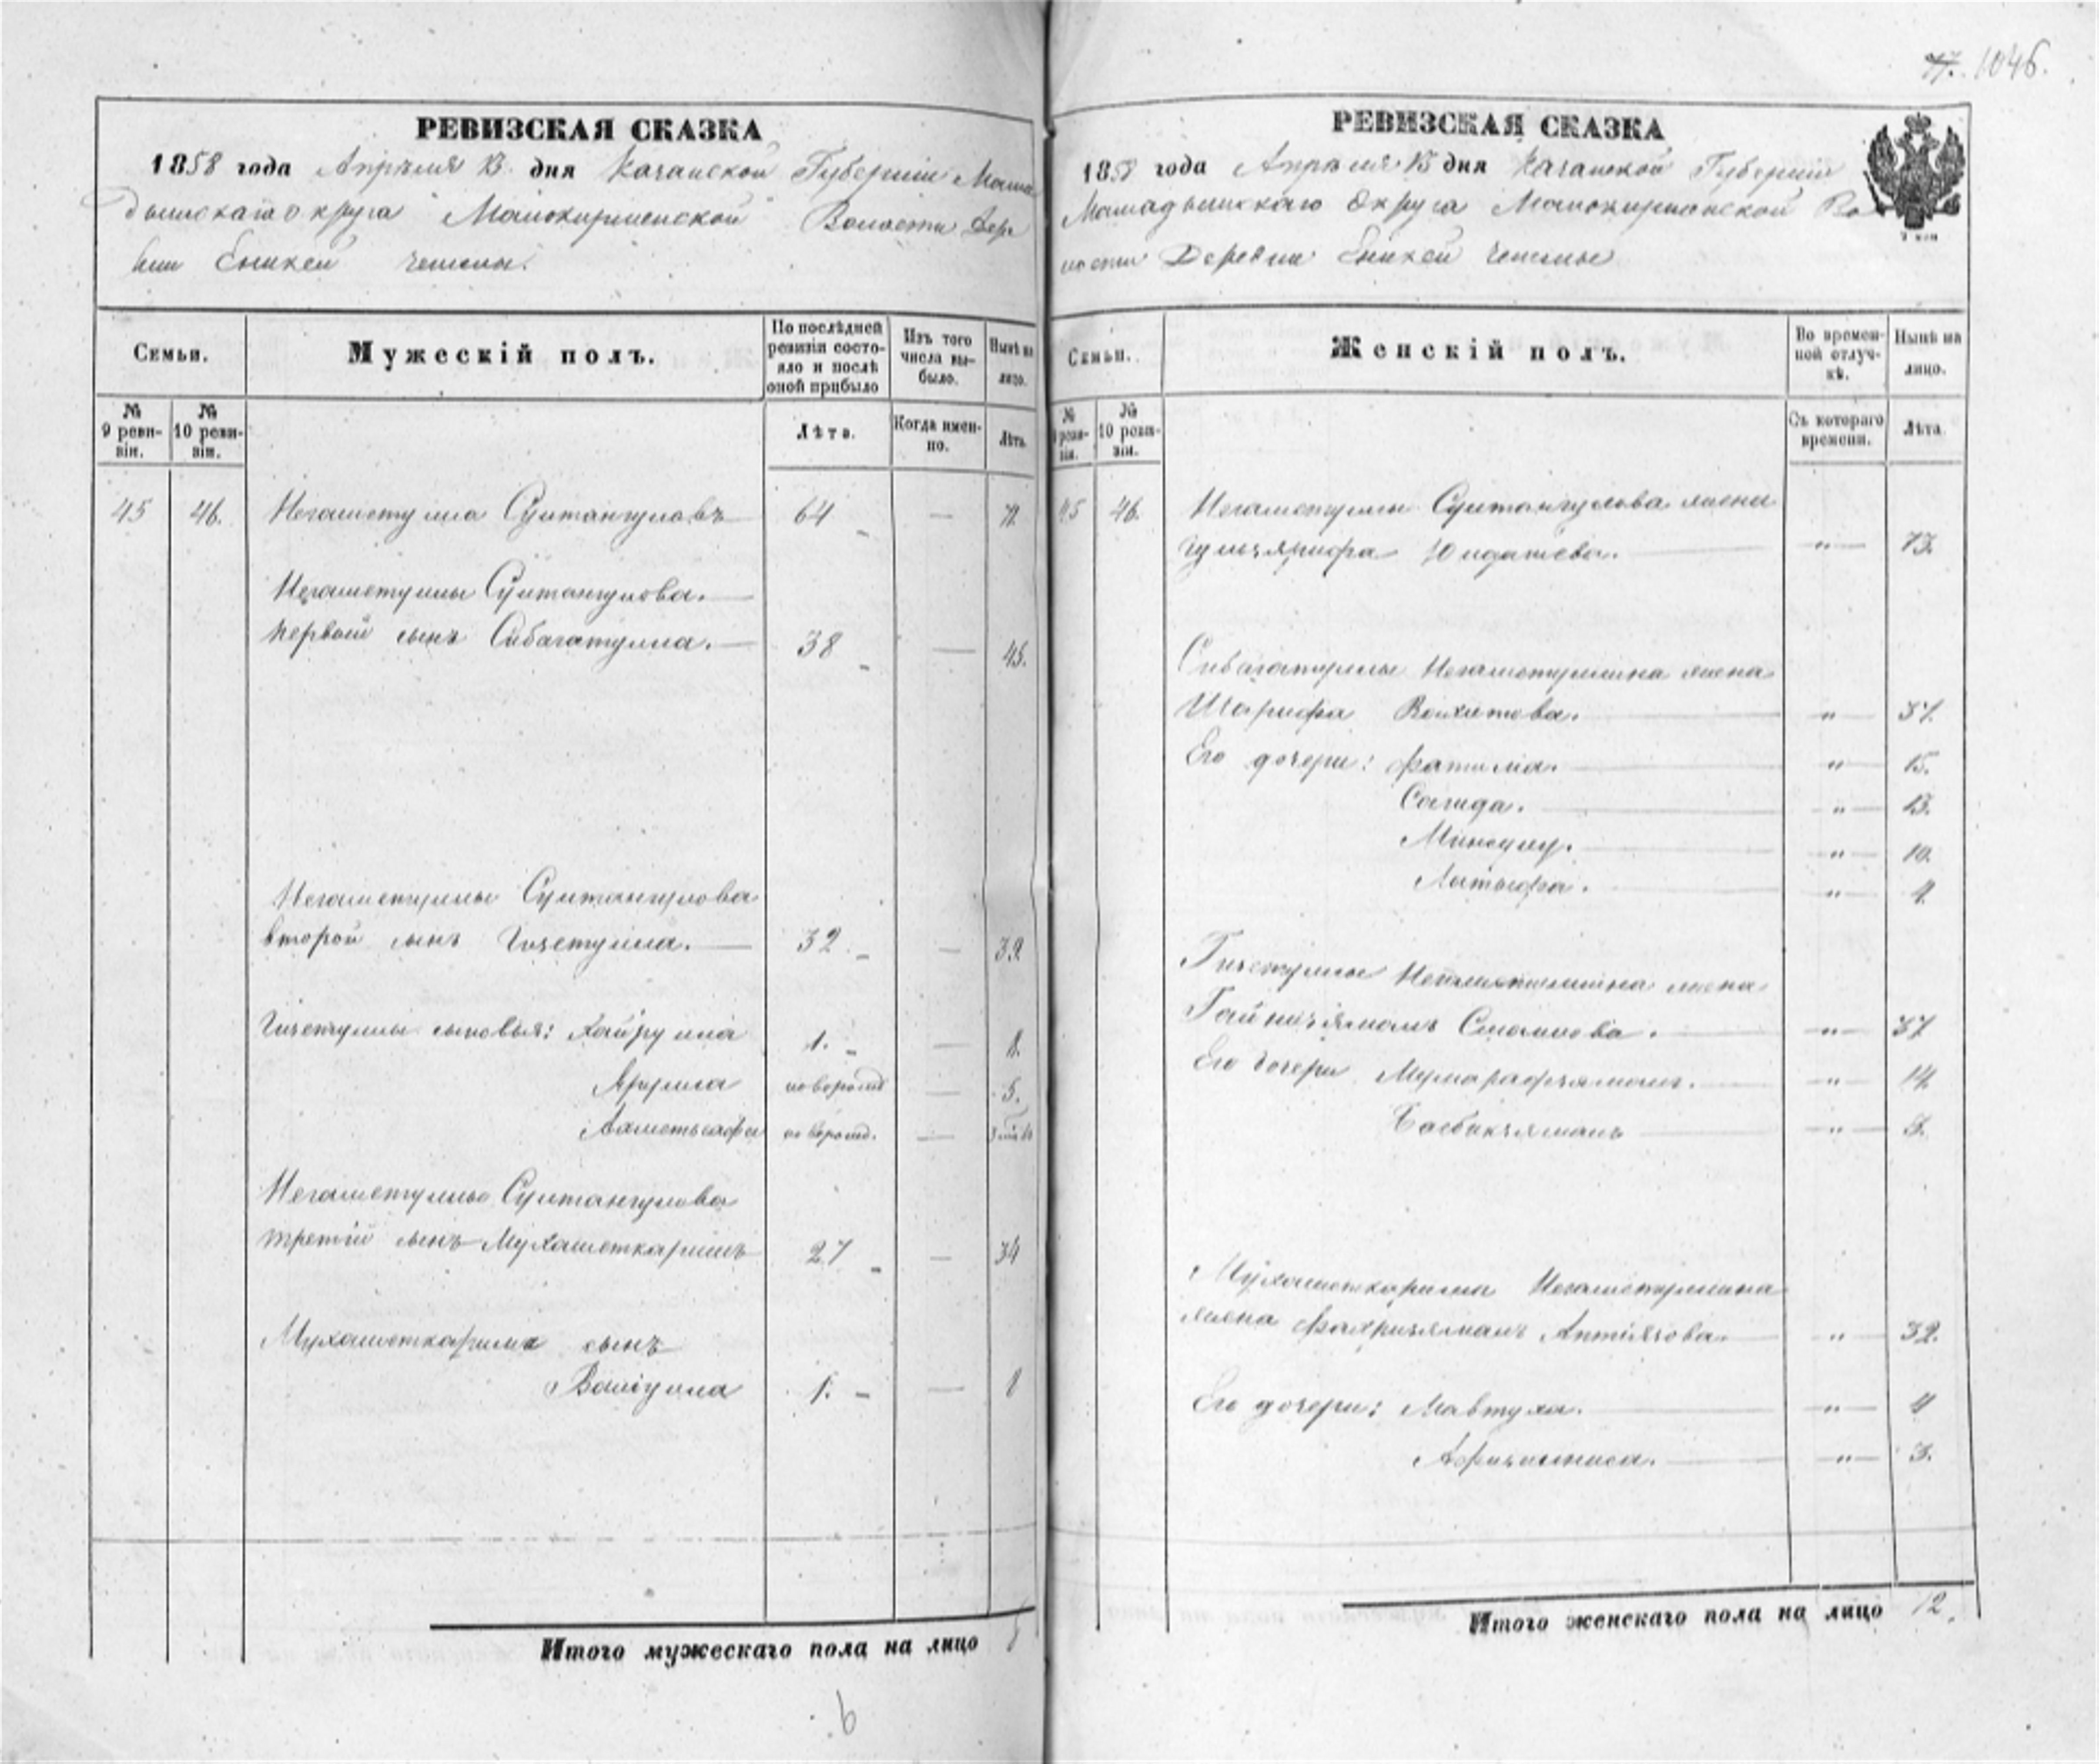 1046.
РЕВИЗСКАЯ СКАЗКА
1858 года Апрѣля 13 дня Казанской Губерніи Мама
дышскаго округа Малокирменской Волости Дере
вни Еникей чешмы.
Семьи.
Мужескій полъ.
По послѣдней ревизіи состояло и послѣ оной прибыло
Изъ того числа выбыло.
Нынѣ на лицо.
№ 9 ревизіи.
№ 10 ревизіи.
Лѣта.
Когда именно.
Лѣта.
45 46. Негаметулла Султангуловъ 64 — 71.
Негаметуллы Султангулова.
первой сынъ Сибагатулла. 38 — 45.
Негаметуллы Султангулова
второй сынъ Гизетулла. 32 — 39.
Гизетуллы сыновья: Хайрулла 1. — 8.
Ярулла новорожд — 5.
новорожд. —
Негаметуллы Султангулова
третій сынъ Мухаметкаримъ 27 — 34
Мухаметкарима сынъ
Валіулла 1. — 8
Итого мужескаго пола на лицо 8
РЕВИЗСКАЯ СКАЗКА
1858 года Апрѣля 13 дня Казанской Губерніи
Мамадышскаго Округа Малокирменской Во
лости Деревни Еникей чешмы
Семьи.
Женскій полъ.
Во временной отлучкѣ.
Нынѣ на лицо.
№ 9 ревизіи.
№ 10 ревизіи.
Съ котораго времени.
Лѣта.
45 46. Негаметуллы Султангулова жена
Юлдашева. " — 73.
Сибагатуллы Негаметуллина жена
Шарифа Валитова. " — 37.
Его дочери: Фатыма. " — 15.
Сагида. " — 13.
" — 10.
Латыфа. " — 4.
Гизетуллы Негаметуллина жена
" — 37
Его дочери " — 14.
" — 5.
Мухаметкарима Негаметуллина
жена Фахризяманъ " — 32.
Его дочери: Мавтуха. " — 4
" — 3.
Итого женскаго пола на лицо 12.